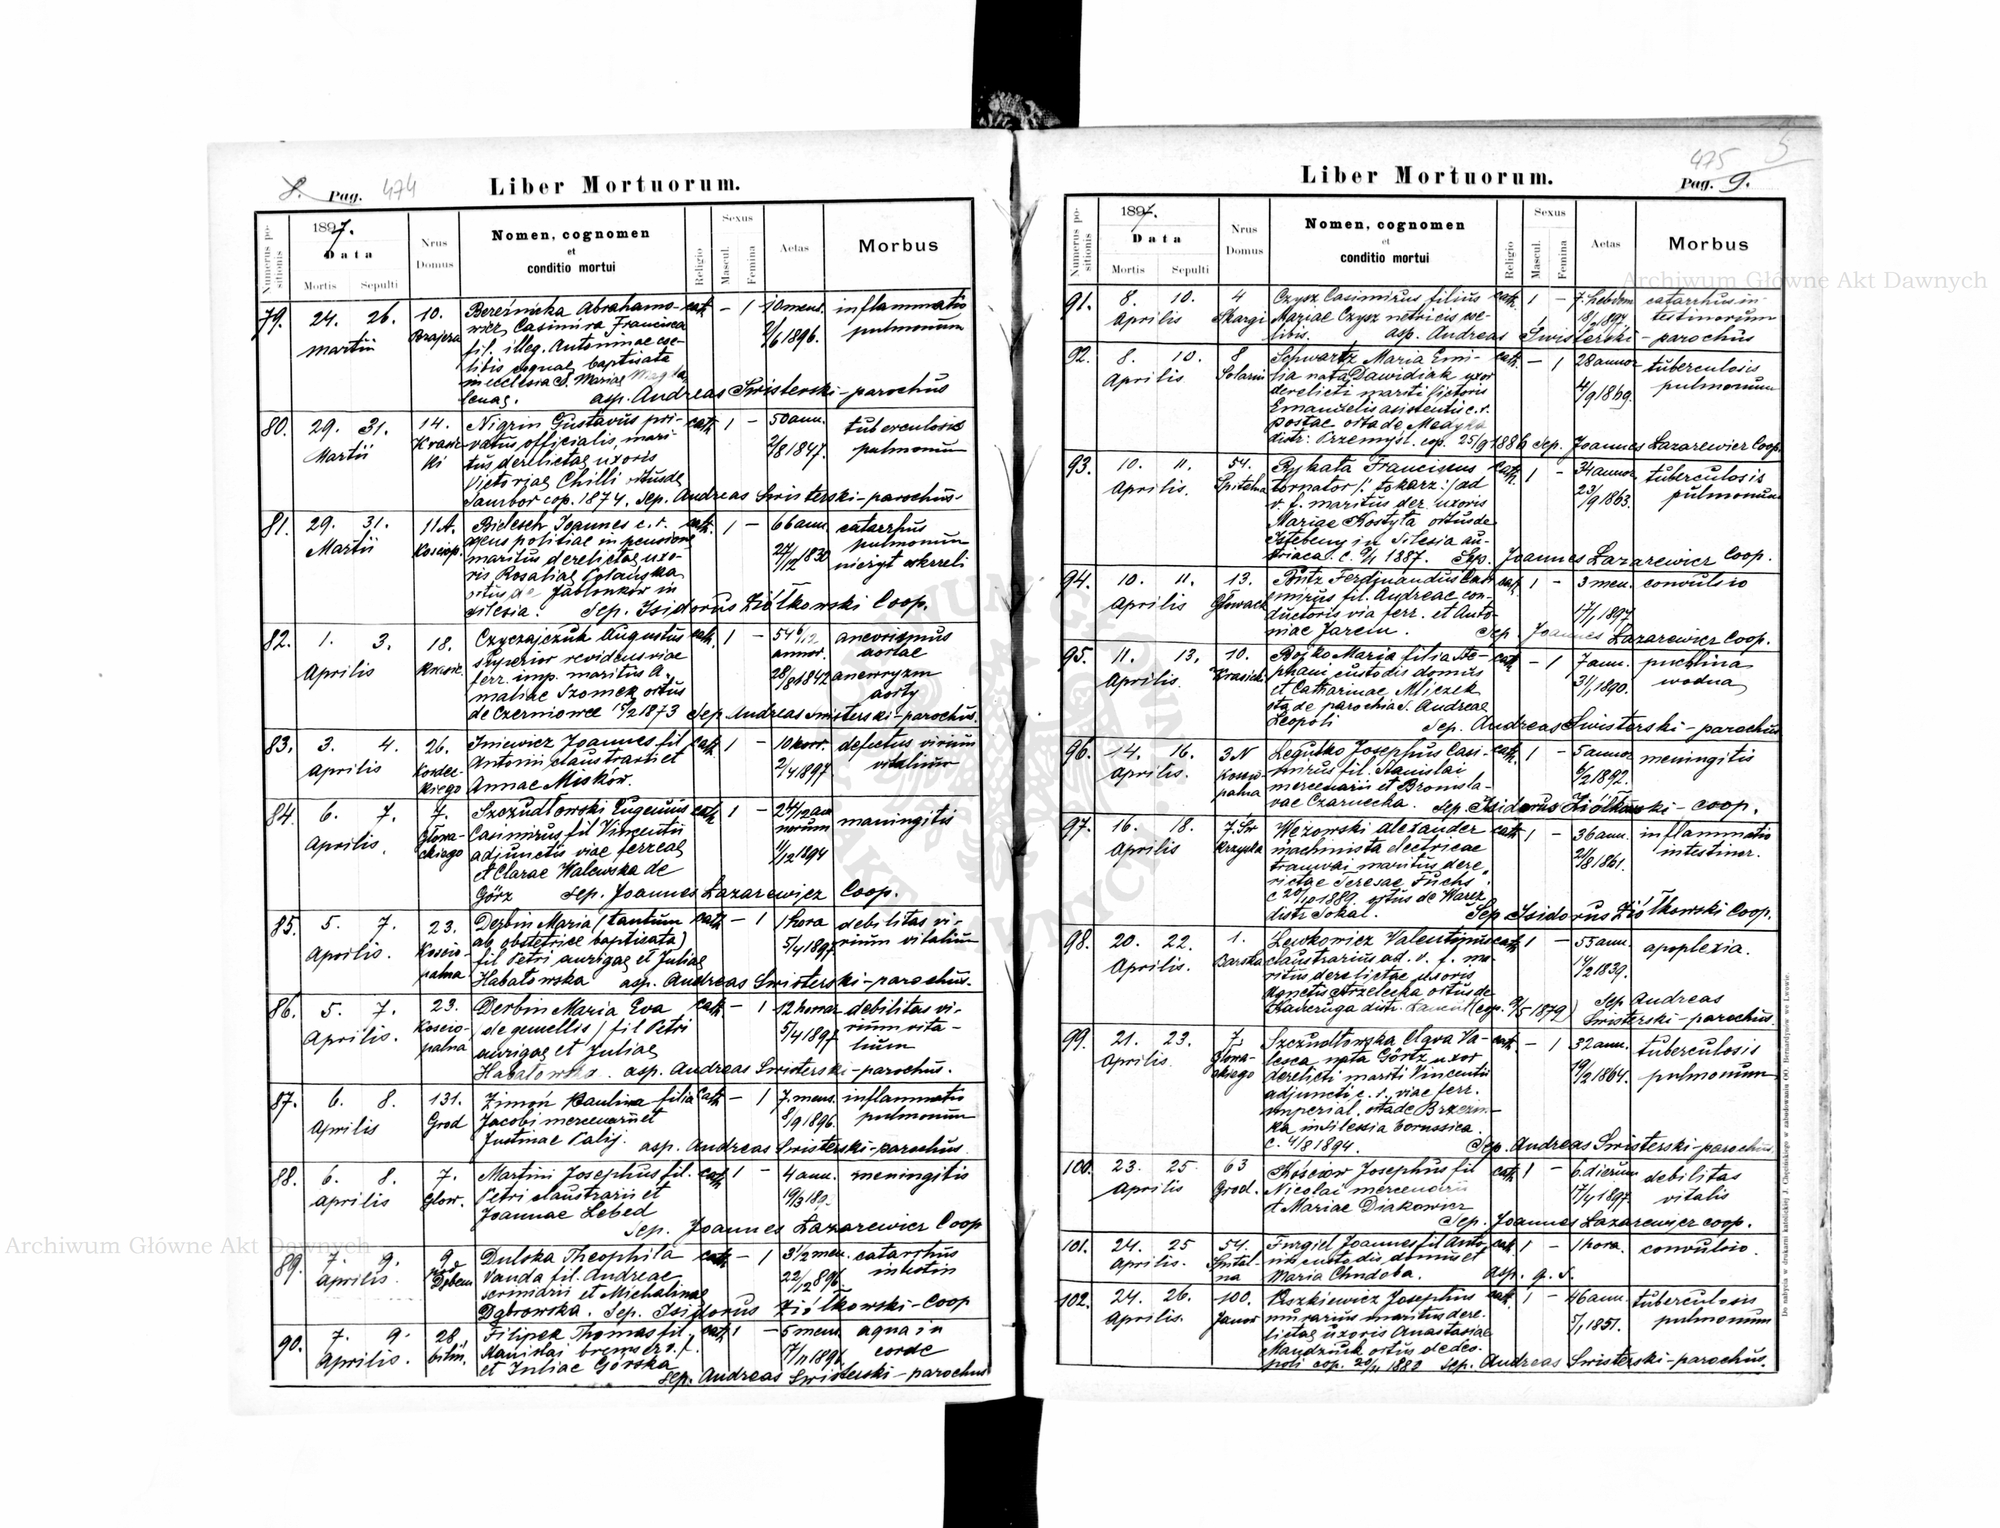 8. Pag. 474
Liber Mortuorum.
Numerus positionis
1897.
Data
Mortis Sepulti
Nrus Domus
Nomen, cognomen
et
conditio mortui
Religio
Sexus
Mascul. Femina
Aetas
Morbus
79. 24. 26. Martii
10.
Bereźnicka Abrahamo-
wicz, Casimira Francisca
fil. illeg. Antoninae cae-
libis baptisata
in ecclesia S. Mariae
lenae. asp. Andreas Swisterski - parochus
cath. - 1 10 mens. 2/6 1896.
inflammatio
pulmonum
80. 29. 31. Martii
14.
Nigrin Gustavus pri-
vatus officialis, mari-
tus derelictae uxoris
Victoriae Chilli ortus de
Sambor cop. 1874. Sep. Andreas Swisterski - parochus.
cath. 1 - 50 ann. 2/8 1847.
tuberculosis
pulmonum
81. 29. 31. Martii
11A. Kościop.
Bidesch Joannes c. r.
agens politiae in pensione
maritus derelictae uxo-
ris Rosaliae Polańska
ortus de Jabłonków in
silesia. Sep. Isidorus Ziółkowski Coop.
cath. 1 - 66 ann. 27/12 1830
catarrhus
pulmonum
nieżyt oskrzeli
82. 1. 3. Aprilis
18.
Czyczajczuk Augustus
superior revidens viae
ferr. imp. maritus A-
maliae Szomek ortus
de Czerniowce 15/2 1873 Sep. Andreas Swisterski - parochus.
cath. 1 - 54 6/12 annor. 28/8 1842
anevrismus
aortae
anewryzm
aorty
83. 3. 4. Aprilis
26. Kordeckiego
Iniewicz Joannes fil.
Antonii claustrarii et
Annae Misków.
cath. 1 - 10 horr. 2/4 1897.
defectus virium
vitalium
84. 6. 7. Aprilis.
7. Głowackiego
Szczudłowski Eugenius
Casimirus fil Vincentii
adjunctis viae ferreae
et Clarae Walewska de
Görz Sep. Joannes Lazarewicz Coop.
cath. 1 - 24/12 annorum 11/12 1894
maningitis
85. 5. 7. Aprilis.
23. Kościopalna
Derbin Maria (tantum
ab obstetrice baptisata)
fil Petri aurigae et Juliae
Habatowska asp. Andreas Swisterski - parochus.
cath. - 1 1 hora 5/4 1897.
debilitas vi-
rium vitalium
86. 5. 7. Aprilis.
23. Kościopalna
Derbin Maria Eva
(de gemellis) fil Petri
aurigae et Juliae
Habatowska. asp. Andreas Swisterski - parochus.
cath. - 1 12 horar. 5/4 1897
debilitas vi-
rium vita-
lium
87. 6. 8. Aprilis
131. Grod
Zimoń Paulina filia
Jacobi mercenarii et
Justinae Palij. asp. Andreas Swisterski - parochus.
Cath. - 1 7. mens. 8/9 1896.
inflammatio
pulmonum
88. 6. 8. Aprilis
7. Głow.
Martini Josephus fil.
Petri claustrarii et
Joannae Lebed
Sep. Joannes Lazarewicz Coop
cath. 1 - 4 ann.
meningitis
89. 7. 9. Aprilis.
9.
Dulska Theophila
Vanda fil. Andreae
et Michalinae
Dąbrowska. Sep. Isidorus Ziółkowski - Coop
cath. - 1 3 1/2 men. 22/12 896.
catarrhus
intestin
90. 7. 9. Aprilis.
28.
Filipek Thomas fil.
Stanislai
et Juliae Górska
Sep. Andreas Swisterski - parochus
cath. 1 - 5 mens. 17/11 1896.
aqua in
corde
475 5
Pag. 9.
Liber Mortuorum.
Numerus positionis
1897.
Data
Mortis Sepulti
Nrus Domus
Nomen, cognomen
et
conditio mortui
Religio
Sexus
Mascul. Femina
Aetas
Morbus
91. 8. 10. Aprilis
4 Skargi
Czysz Casimirus filius
Mariae Czysz nutricis cae-
libis. asp. Andreas Swisterski - parochus
cath. 1 - 7. hebdom 18/2 1897
catarrhus in-
testinorum
92. 8. 10. Aprilis
8 Solarni
Schwartz Maria Emi-
lia nata Dawidiak uxor
derelicti mariti Victoris
Emanuelis asistentis c. r.
postae orta de Medyka
distr. Przemyśl. cop. 25/9 1886 Sep. Joannes Lazarewicz Coop.
cath. - 1 28 annor 4/9 1869.
tuberculosis
pulmonum
93. 10. 11. Aprilis.
54. Szpitalna
Rykata Franciscus
tornator /: tokarz :/ ad
v. f. maritus der. uxoris
Mariae Kostyta ortus de
Istebeny in Silesia au-
striaca. c. 9/1 1887. Sep. Joannes Lazarewicz Coop.
cath. 1 - 34 annor 23/9 1863.
tuberculosis
pulmonum
94. 10. 11. Aprilis
13. Głowack
Butz Ferdinandus Casi
mirus fil. Andreae con-
ductoris via ferr. et Anto-
niae Jarem. Sep. Joannes Lazarewicz Coop.
cath. 1 - 3 men. 17/1 1897
convulsio
95. 11. 13. Aprilis.
10. Krasicki
Bojko Maria filia Ste-
phani custodis domus
et Catharinae Mliczek
orta de parochia S. Andreae
Leopoli Sep. Andreas Swisterski - parochus
cath. - 1 7 ann. 31/1 1890.
puchlina
wodna
96. 14. 16. Aprilis.
3.N Kościopalna
Legutko Josephus Casi-
mirus fil. Stanislai
mercenarii et Bronisla-
vae Czarnecka. Sep. Isidorus Ziółkowski - coop.
cath. 1 - 5 annor 6/2 1892.
meningitis
97. 16. 18. Aprilis
7. Św Krzyża
Wezowski Alexander
machinista electricae
tramvai maritus dere-
lictae Teresae Fuchs.
c 20/10 1889. ortus de Waręz
distr Sokal. Sep Isidorus Ziółkowski Coop.
cath. 1 - 36 ann. 21/8 1861.
inflammatio
intestinor.
98. 20. 22. Aprilis.
1. Barska
Lewkowicz Valentinus
claustrarius ad. v. f. ma-
ritus derelictae uxoris
Agnetis Strzelecka ortus de
Hanczuga distr. Łańcut (cop. 9/5 1879) Sep Andreas
Swisterski - parochus.
cath. 1 - 55 ann. 14/2 1839.
apoplexia.
99. 21. 23. Aprilis.
7. Głowackiego
Szczudłowska Clara Va-
lesca nata Görtz uxor
derelicti mariti Vincentii
adjuncti c. r. viae ferr.
imperial. orta de Brzezin-
ka in Silesia borussica.
c. 4/8 1894. Sep. Andreas Swisterski - parochus.
cath. - 1 32 ann. 19/2 1864.
tuberculosis
pulmonum
100. 23. 25. Aprilis
63 Grod.
Kościów Josephus fil
Nicolai mercenarii
et Mariae Diakowicz
Sep. Joannes Lazarewicz coop.
cath. 1 - 6. dierum 17/4 1897.
debilitas
vitalis
101. 24. 25 Aprilis.
54. Szpitalna
Furgiel Joannes fil Anto-
nii custodis domus et
Maria Chudoba. Asp. q. s.
cath. 1 - 1 hora.
convulsio.
102. 24. 26. Aprilis.
100. Janow
Uszkiewicz Josephus
murarius maritus dere-
lictae uxoris Anastasiae
Mandziuk ortus de Leo-
poli cop. 20/11 1882 Sep. Andreas Swisterski - parochus.
cath. 1 - 46 ann. 5/1 1851.
tuberculosis
pulmonum
Do nabycia w drukarni katolickiej J. Chęcińskiego w zabudowaniu OO. Bernardynów we Lwowie.
Archiwum Główne Akt Dawnych
Archiwum Główne Akt Dawnych
ARCHIWUM GŁÓWNE AKT DAWNYCH